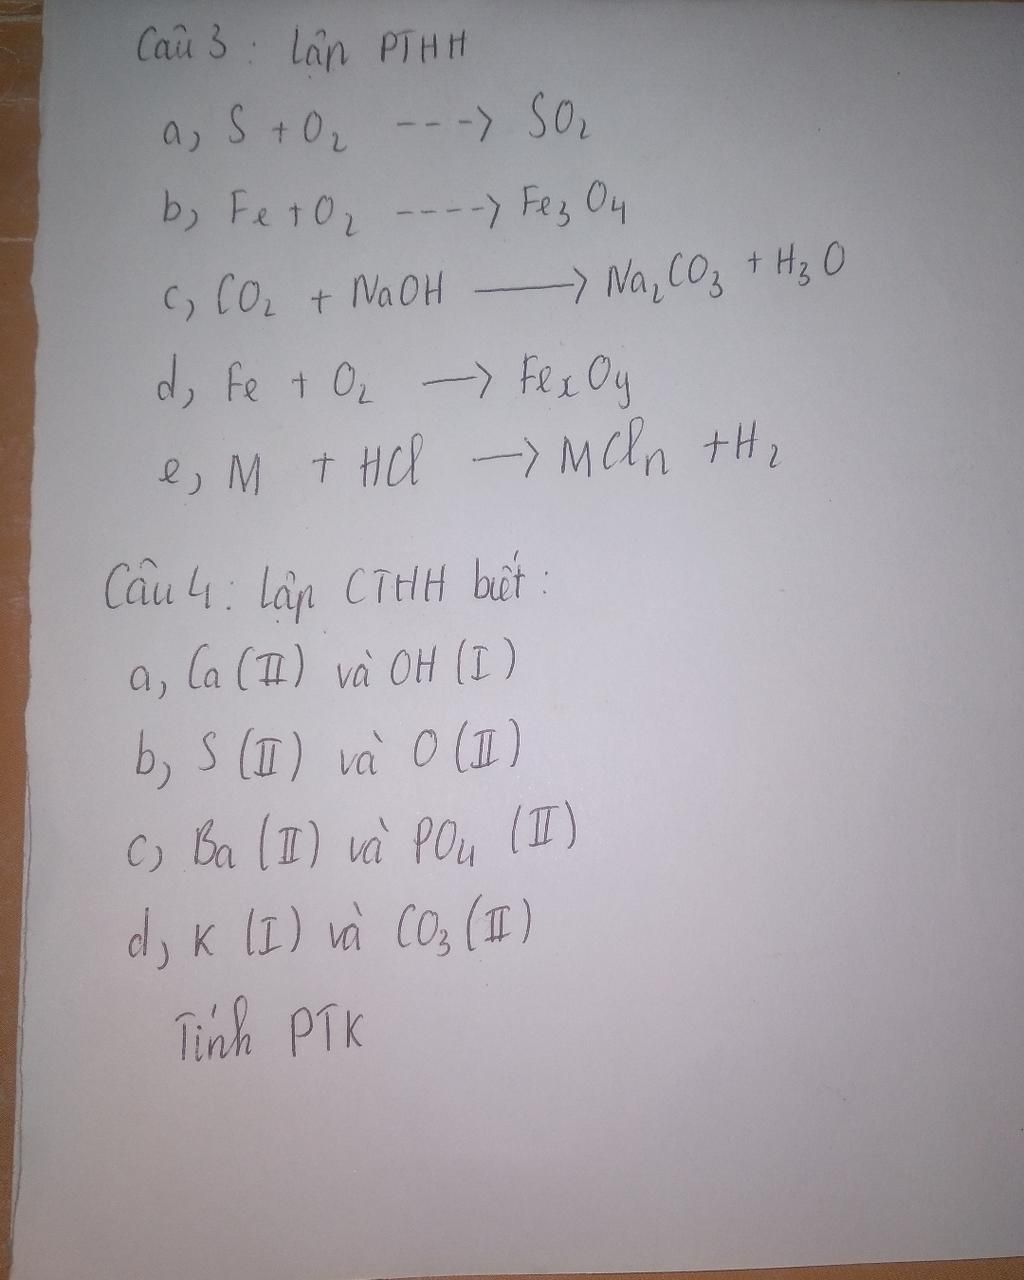 Câu 3 : Lập PTHH
a, S + O2 ---> SO2
b, Fe + O2 ----> Fe3O4
c, CO2 + NaOH ⟶ Na2CO3 + H3O
d, Fe + O2 ⟶ FexOy
e, M + HCl ⟶ MCln + H2
Câu 4 : Lập CTHH biết :
a, Ca (II) và OH (I)
b, S (II) và O (II)
c, Ba (II) và PO4 (II)
d, K (I) và CO3 (II)
Tính PTK